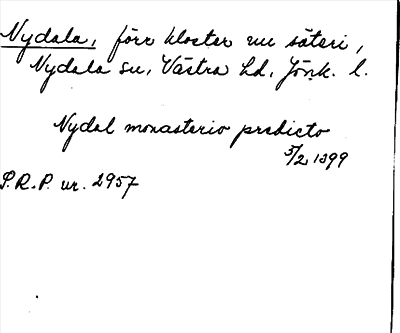 Nydala, förr kloster nu säteri,
Nydala sn, Västra hd, Jönk. l.
Nydal monasterio predicto
5/2 1399
S.R.P. nr. 2957